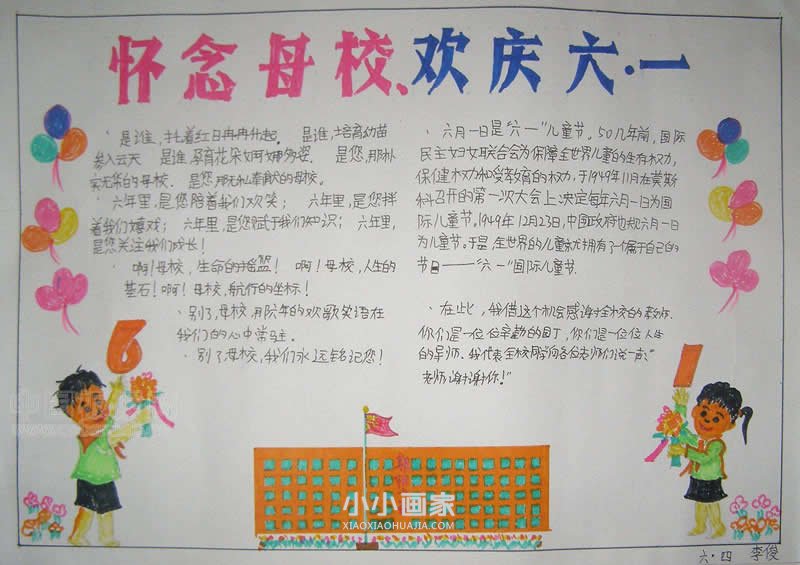 怀念母校、欢庆六·一
是谁,扎着红日冉冉升起。 是谁,培育幼苗
参入云天 是谁,孕育花朵婀娜多姿。 是您,那朴
实无华的母校. 是您,那无私奉献的母校。
六年里,是您陪着我们欢笑; 六年里,是您拌
着我们嬉戏; 六年里,是您赋于我们知识; 六年里,
是您关注我们成长!
啊!母校,生命的摇篮! 啊!母校,人生的
基石!啊!母校,航行的坐标!
别了,母校,用阮年的欢歌笑语在
我们的心中常驻.
别了母校,我们永远铭记您!
六月一日是“六一”儿童节。50几年前,国际
民主妇女联合会为保障全世界儿童的生存权力,
保健权力和受教育的权力,于1949年11月在莫斯
科召开的第一次大会上决定每年六月一日为国
际儿童节。1949年12月23日,中国政府也规六月一日
为儿童节。于是,全世界的儿童就拥有了个属于自己的
节日——“六一”国际儿童节.
在此,我借这个机会感谢全校的教师.
你们是一位位辛勤的园丁,你们是一位位人生
的导师.我代表全校同学向各位老师们说一声:“
老师谢谢你!”
6
1
小小画家
XIAOXIAOHUAJIA.COM
六·四 李俊